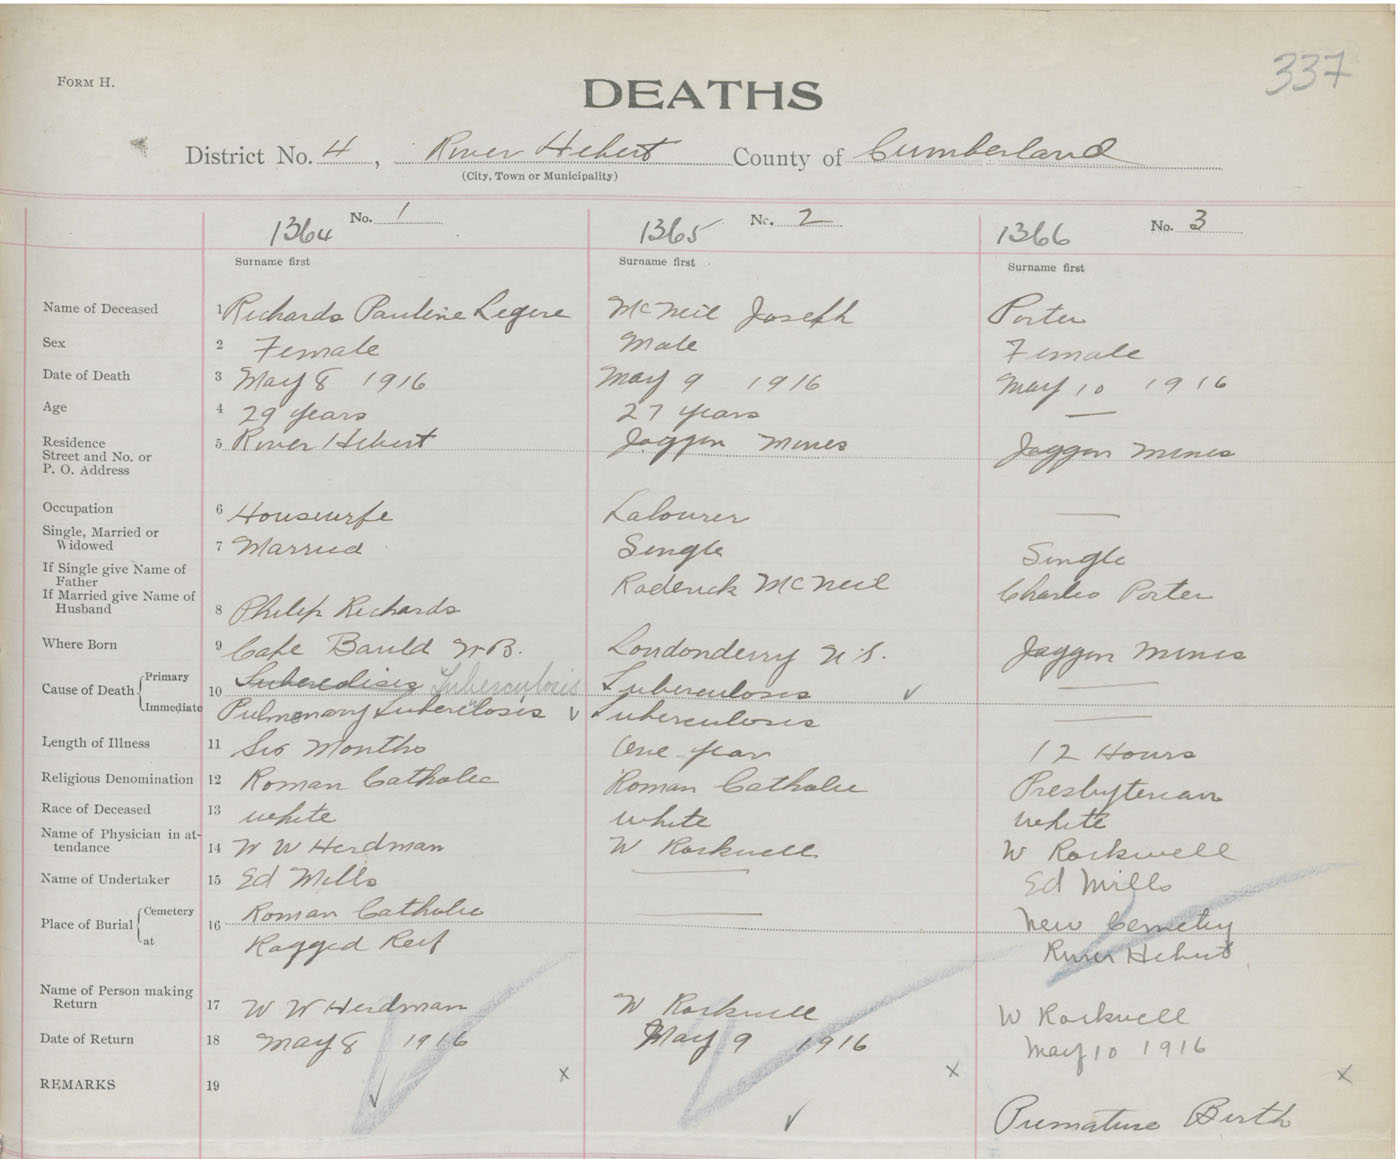 337
FORM H.
DEATHS
District No. 4, River Hebert County of Cumberland
(City, Town or Municipality)
1364 No. 1 1365 No. 2 1366 No. 3
Surname first Surname first Surname first
Name of Deceased 1 Richards Pauline Legere McNeil Joseph Porter
Sex 2 Female Male Female
Date of Death 3 May 8 1916 May 9 1916 May 10 1916
Age 4 29 years 27 years —
Residence
Street and No. or
P. O. Address 5 River Hebert Joggin Mines Joggin Mines
Occupation 6 Housewife Labourer —
Single, Married or
Widowed 7 Married Single Single
If Single give Name of
Father Roderick McNeil Charles Porter
If Married give Name of
Husband 8 Philip Richards
Where Born 9 Cape Bauld N.B. Londonderry N.S. Joggin Mines
Cause of Death { Primary 10 Tubercolisis Tuberculosis Tuberculosis ✓ —
Immediate Pulmonary Tuberculosis ✓ Tuberculosis —
Length of Illness 11 Six Months One year 12 Hours
Religious Denomination 12 Roman Catholic Roman Catholic Presbyterian
Race of Deceased 13 white white white
Name of Physician in at-
tendance 14 W W Herdman W Rockwell W Rockwell
Name of Undertaker 15 Ed Mills — Ed Mills
Place of Burial { Cemetery 16 Roman Catholic — New Cemetry
at Ragged Reef River Hebert
Name of Person making
Return 17 W W Herdman W Rockwell W Rockwell
Date of Return 18 May 8 1916 May 9 1916 May 10 1916
REMARKS 19 x x x
Premature Birth